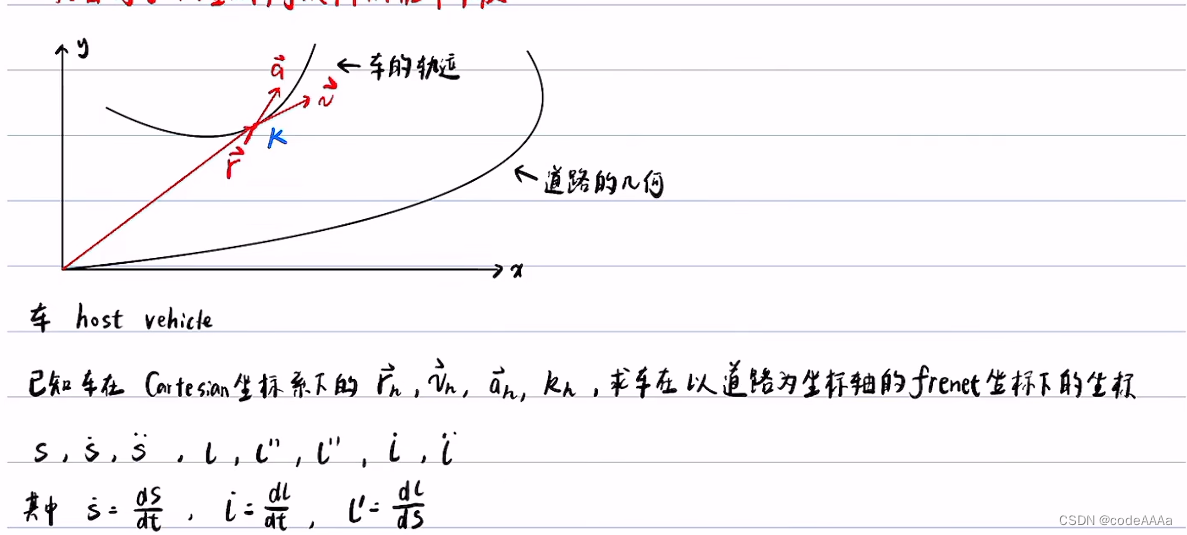 y
a⃗
←车的轨迹
v⃗
K
r⃗
←道路的几何
x
车 host vehicle
已知车在 Cartesian坐标系下的 r⃗ₕ, v⃗ₕ, a⃗ₕ, kₕ, 求车在以道路为坐标轴的frenet坐标下的坐标
s, ṡ, s̈, l, l'', l'', l̇, l̈
其中 ṡ = ds/dt, l̇ = dl/dt, l' = dl/ds
CSDN @codeAAAa